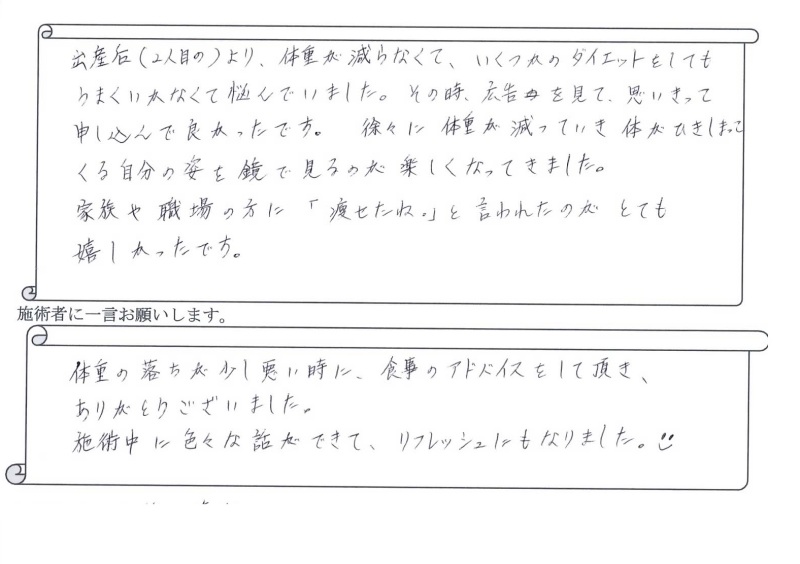 出産后(2人目の)より、体重が減らなくて、いくつかのダイエットをしても
うまくいかなくて悩んでいました。その時、広告を見て、思いきって
申し込んで良かったです。 徐々に体重が減っていき体がひきしまって
くる自分の姿を鏡で見るのが楽しくなってきました。
家族や職場の方に「痩せたね。」と言われたのがとても
嬉しかったです。
施術者に一言お願いします。
体重の落ちが少し悪い時に、食事のアドバイスをして頂き、
ありがとうございました。
施術中に色々な話ができて、リフレッシュにもなりました。